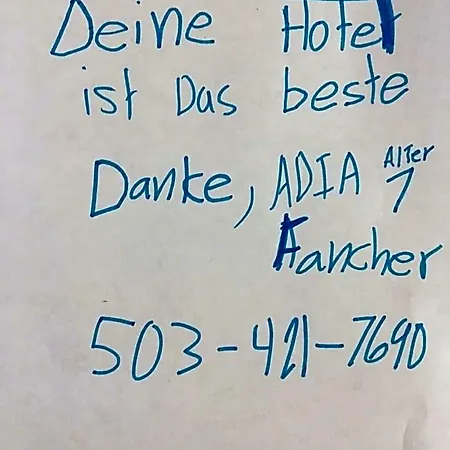 Deine Hotel
ist Das beste
Danke, ADIA Alter 7
Fancher
503-421-7690